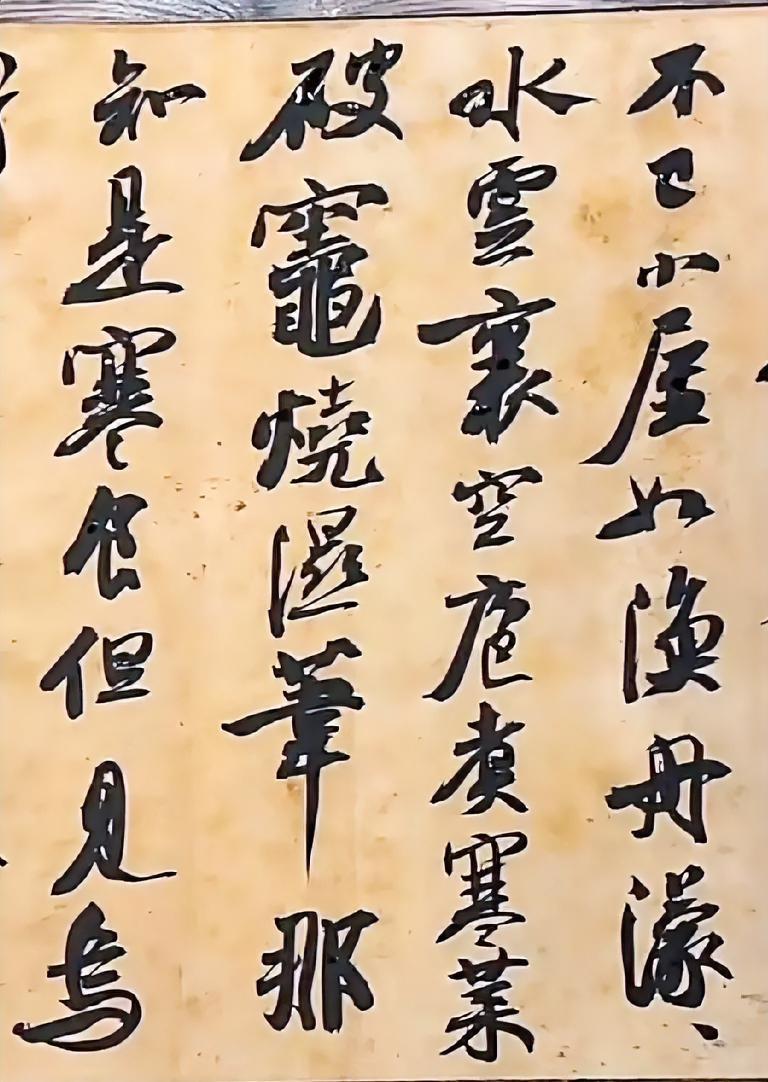 不已小屋如漁舟濛〻
水雲裏空庖煮寒菜
破竈燒濕葦那
知是寒食但見烏